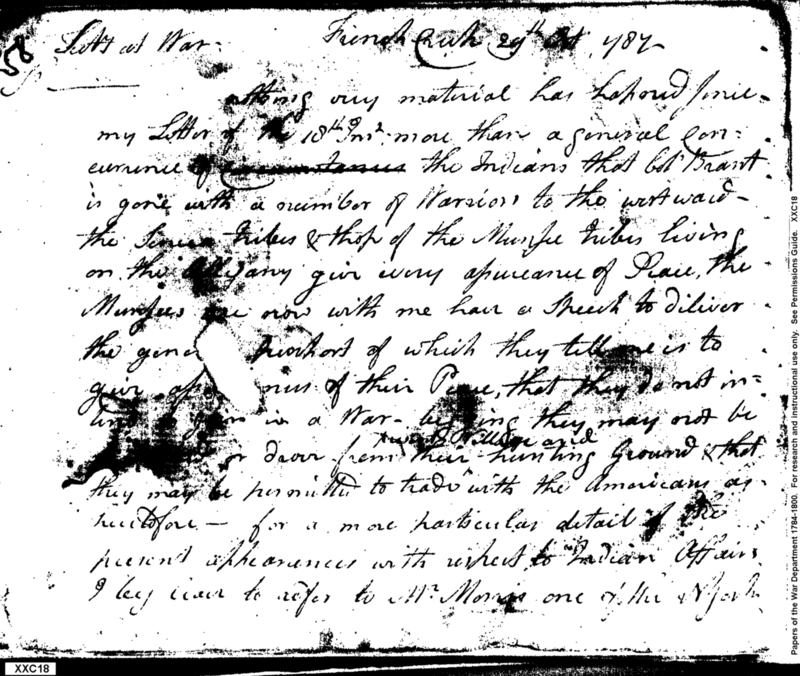 58
Sect at War - French Creek 29th Oct 1787 -
nothing very material has hapned since
my Letter of the 18th Inst. more than a general Con=
currence of circumstances the Indians that Cot Brant
is gone with a number of Warriors to the westward -
the Seneca tribes & thos of the Munsee tribes living
on the Allegany give every apureance of Peace, the
Munsees are now with me have a Speech to diliver
the gene purport of which they tell me is to
give of their Peace, that they do not in=
in a War - begging they may not be
or drove from their Village and hunting Ground & that
they may be permitted to trade with the Americans as
heretofore - for a more particular detail of the
present appearences with respect to Indian Affairs
I beg leave to refer to Mr. Morris one of the N York
XXC18
Papers of the War Department 1784-1800. For research and instructional use only. See Permissions Guide. XXC18